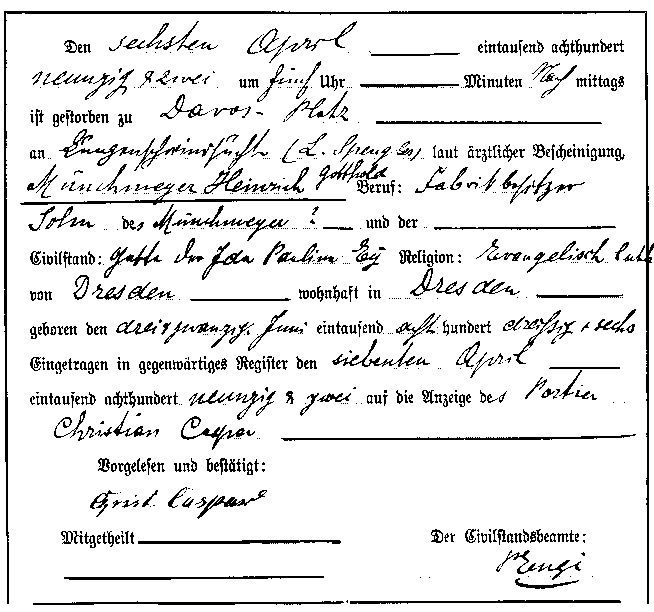 Den sechsten April eintausend achthundert
neunzig & zwei um fünf Uhr Minuten Nach mittags
ist gestorben zu Davos-Platz
an Lungenschwindsucht (L. Spengler) laut ärztlicher Bescheinigung,
Münchmeyer Heinrich Gotthold Beruf: Fabrikbesitzer
Sohn des Münchmeyer ? und der
Civilstand: Gatte der Ida Pauline Ey Religion: Evangelisch luth
von Dresden wohnhaft in Dresden
geboren den dreiundzwanzig. Juni eintausend acht hundert dreissig & sechs
Eingetragen in gegenwärtiges Register den siebenten April
eintausend achthundert neunzig & zwei auf die Anzeige des Portier
Christian Caspar
Vorgelesen und bestätigt:
Christ Caspar
Mitgetheilt Der Civilstandsbeamte: